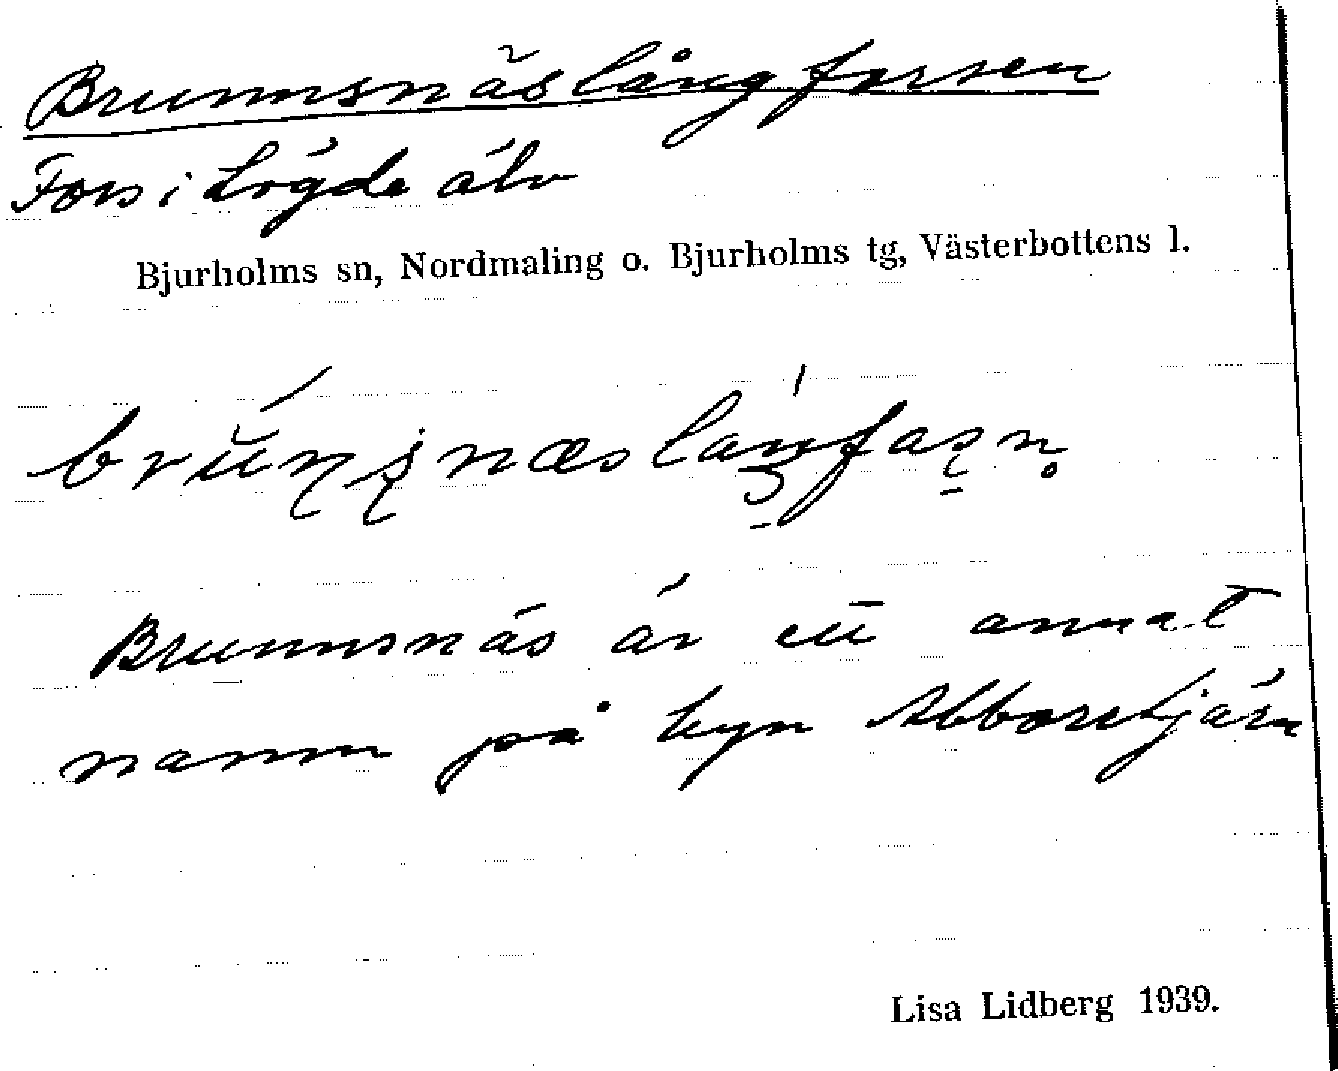 Brunnsnäslångforsen
Fors i Lögde älv
Bjurholms sn, Nordmaling o. Bjurholms tg, Västerbottens l.
Brunnsnäs är ett annat
namn på byn Abborrtjärn
Lisa Lidberg 1939.